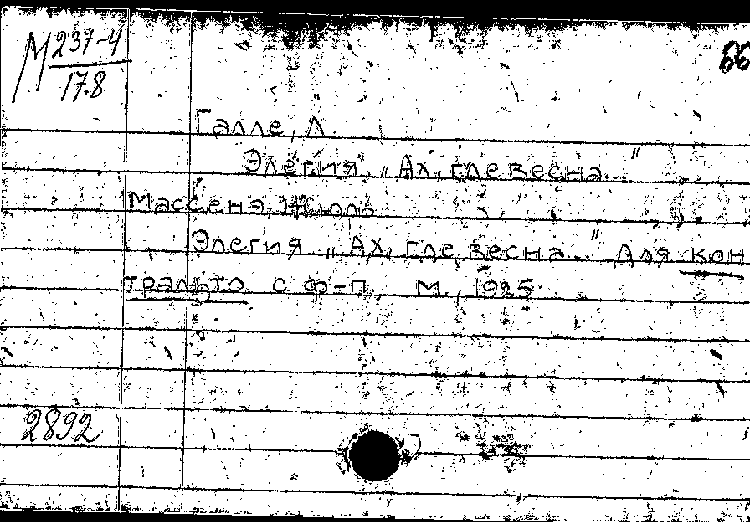 М 237-4
17.8
66
Галле, Л.
Элегия „Ах, где весна..."
Массенэ, Жюль
Элегия „Ах, где весна..." Для кон
тральто с ф-п. М., 1925
2892